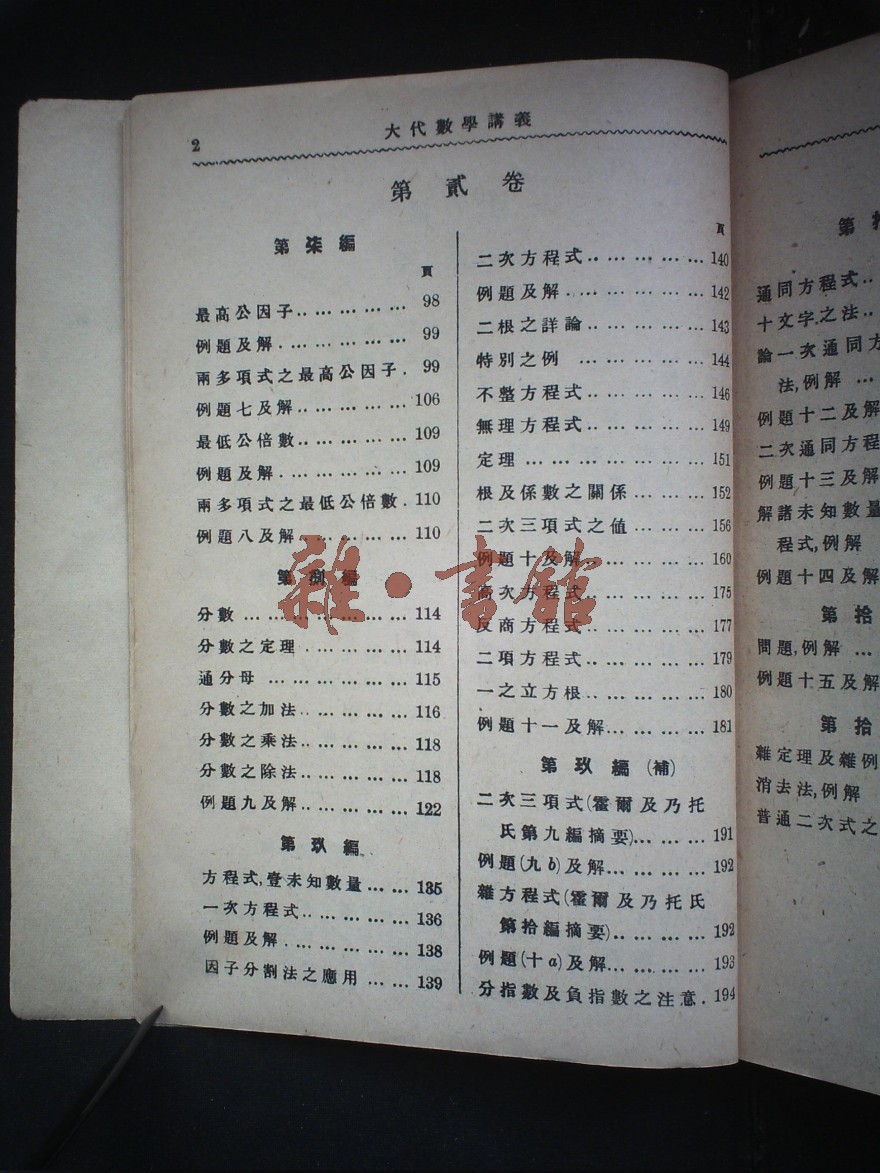 2
大代數學講義
第貳卷
第柒編
頁
最高公因子.. ... ... ... ... 98
例題及解. ... ... ... ... ... 99
兩多項式之最高公因子. 99
例題七及解.. ... ... ... ... 106
最低公倍數.. ... ... ... ... 109
例題及解. ... ... ... ... ... 109
兩多項式之最低公倍數. 110
例題八及解 ... ... ... ... 110
第捌編
分數 ... ... ... ... ... ... ... 114
分數之定理 . ... ... ... ... 114
通分母 ... ... ... ... ... ... 115
分數之加法.. ... ... ... ... 116
分數之乘法.. ... ... ... ... 118
分數之除法.. ... ... ... ... 118
例題九及解.. ... ... ... ... 122
第玖編
方程式,壹未知數量 ... ... 135
一次方程式.. ... ... ... ... 136
例題及解. ... ... ... ... ... 138
因子分割法之應用 ... ... 139
頁
二次方程式.. ... ... ... ... 140
例題及解. ... ... ... ... ... 142
二根之詳論.. ... ... ... ... 143
特別之例 ... ... ... ... ... 144
不整方程式.. ... ... ... ... 146
無理方程式.. ... ... ... ... 149
定理 ... ... ... ... ... ... ... 151
根及係數之關係... ... ... 152
二次三項式之值 ... ... ... 156
例題十及解.. ... ... ... ... 160
高次方程式.. ... ... ... ... 175
反商方程式.. ... ... ... ... 177
二項方程式.. ... ... ... ... 179
一之立方根.. ... ... ... ... 180
例題十一及解... ... ... ... 181
第玖編(補)
二次三項式(霍爾及乃托
氏第九編摘要)... ... ... 191
例題(九b)及解... ... ... ... 192
雜方程式(霍爾及乃托氏
第拾編摘要).. ... ... ... 192
例題(十a)及解... ... ... ... 193
分指數及負指數之注意. 194
雜·書館
第拾
通同方程式..
十文字之法..
論一次通同方
法,例解 ...
例題十二及解
二次通同方程
例題十三及解
解諸未知數量
程式,例解
例題十四及解
第拾
問題,例解 ...
例題十五及解
第拾
雜定理及雜例
消去法,例解
普通二次式之